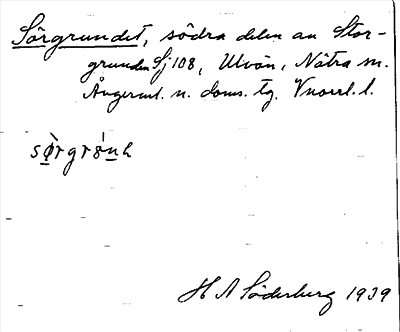 Sörgrundet, södra delen av Stor-
grunden Sj 108, Ulvön, Nätra sn.
Ångerml. n. doms. tg. Vnorrl. l.
sø̀rgrȣnh
H A Söderberg 1939